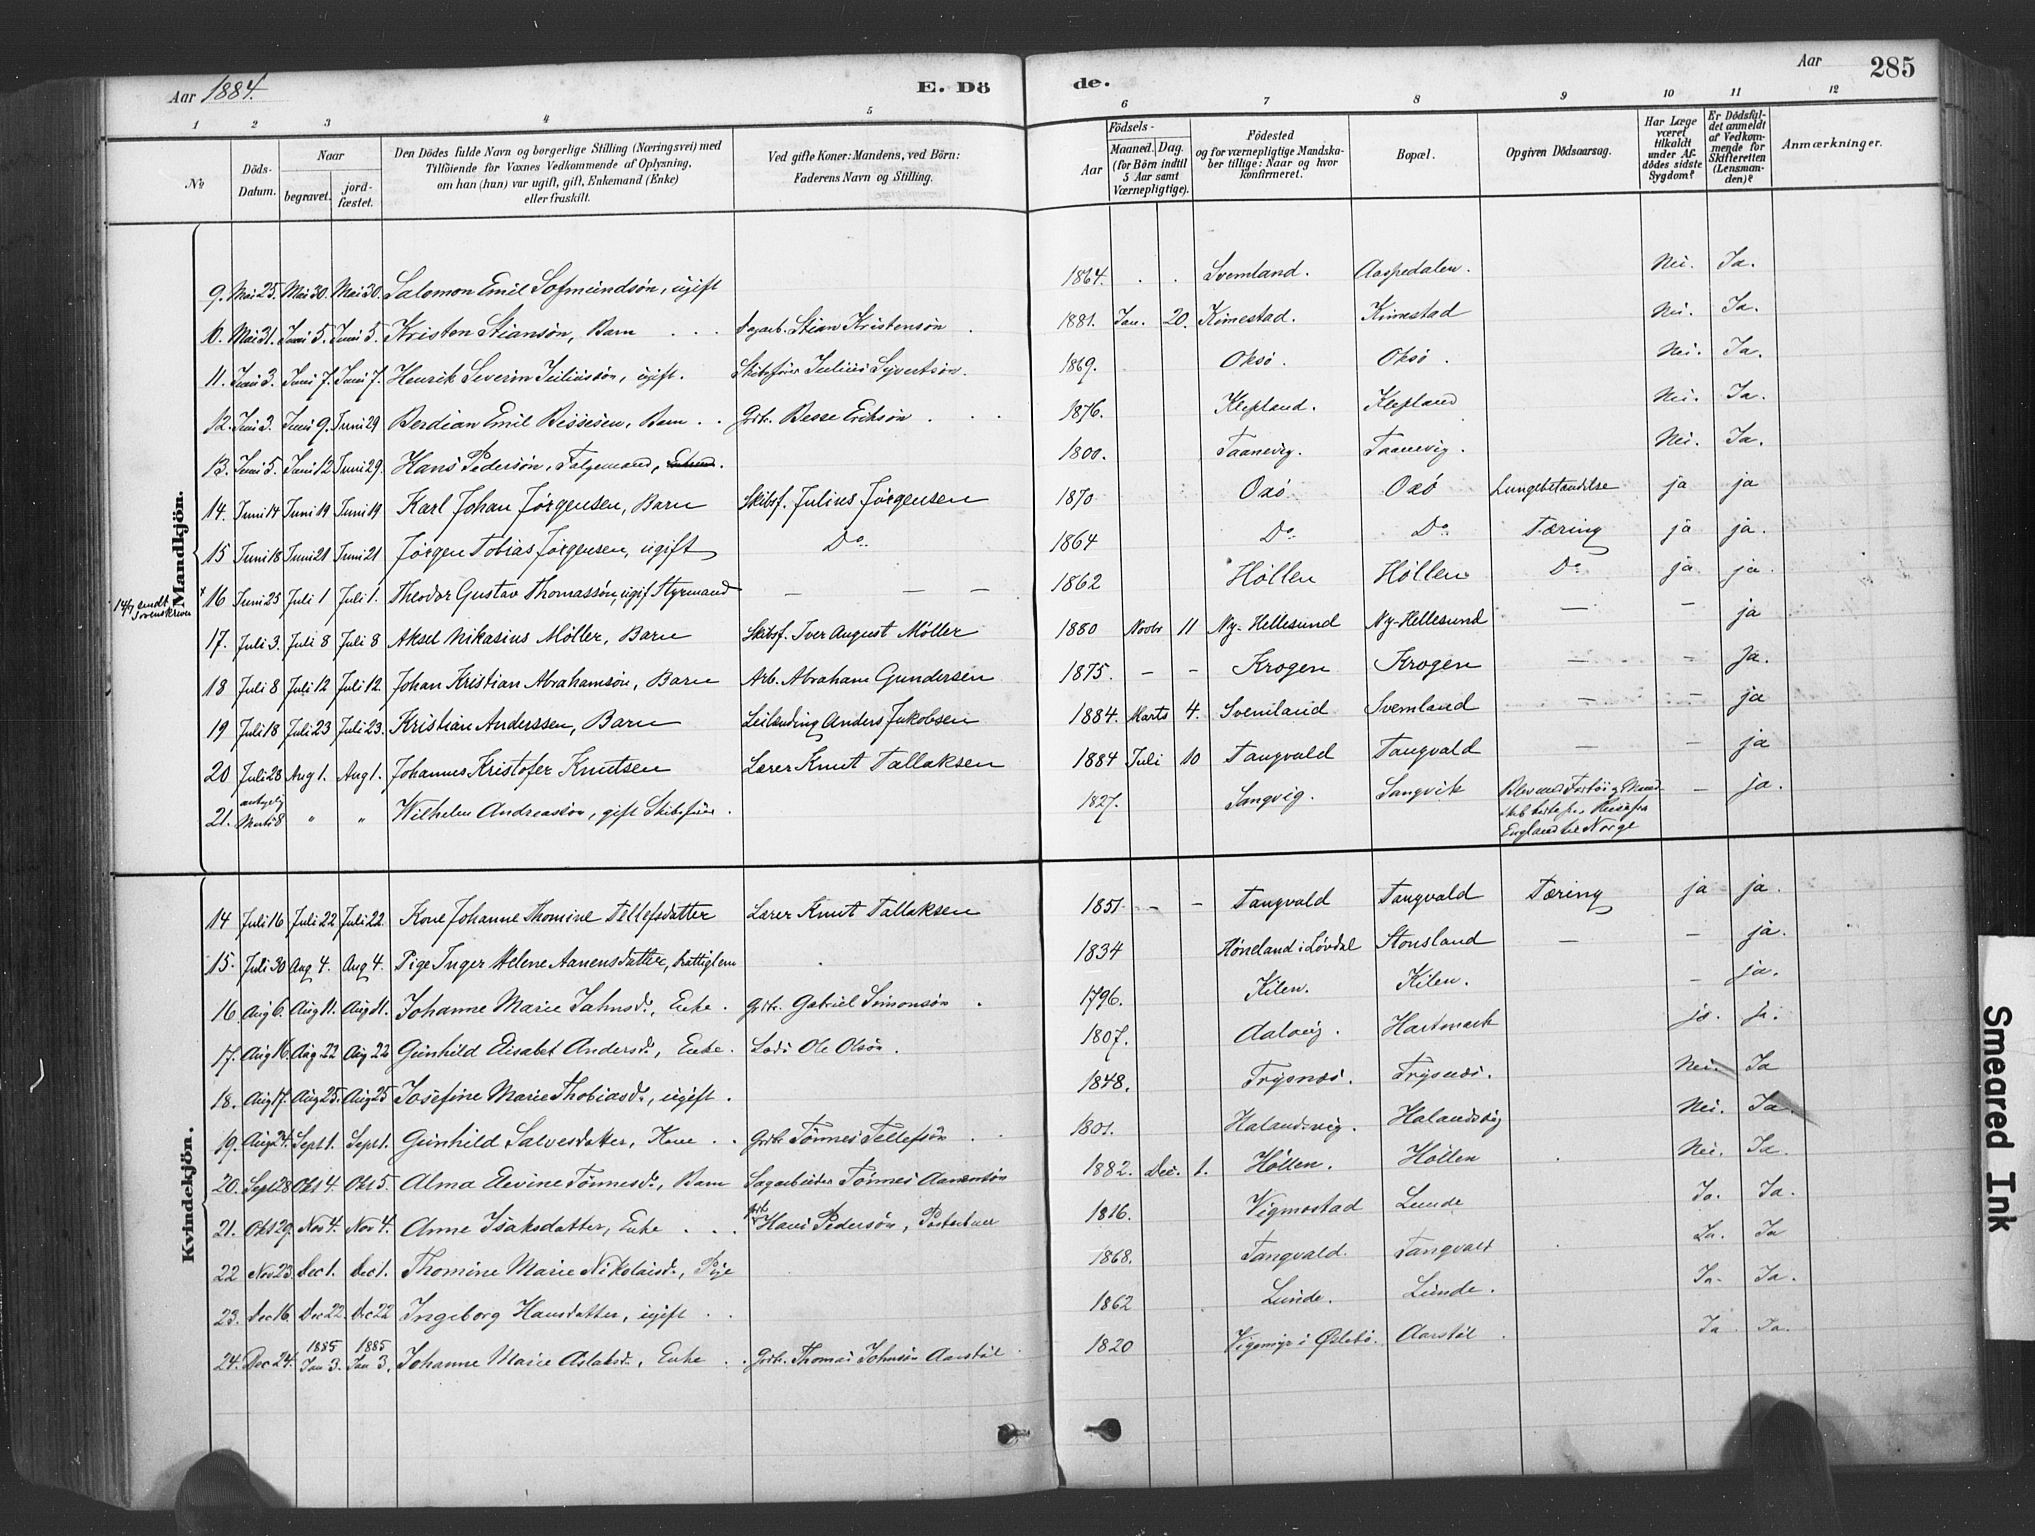 Aar 1884.
E. Dö
de.
Aar
285
1 2 3 4 5 6 7 8 9 10 11 12
No
Döds-Datum.
Naar
begravet.
jord-fæstet.
Den Dödes fulde Navn og borgerlige Stilling (Næringsvei) med
Tilföiende for Voxnes Vedkommende af Oplysning,
om han (hun) var ugift, gift, Enkemand (Enke)
eller fraskilt.
Ved gifte Koner: Mandens, ved Börn:
Faderens Navn og Stilling.
Aar
Födsels-
Maaned. Dag.
(for Börn indtil
5 Aar samt
Værnepligtige).
Födested
og for værnepligtige Mandska-
ber tillige: Naar og hvor
konfirmeret.
Bopæl.
Opgiven Dödsaarsag.
Har Læge
været
tilkaldt
under Af-
dödes sidste
Sygdom?
Er Dödsful-
det anmeldt
af Vedkom-
mende for
Skifteretten
(Lensman-
den)?
Anmærkninger.
Mandkjön.
9. Mai 25. Mai 30. Mai 30. Salomon Emil Sofmundsön, ugift 1864. . . Svemland. Aaspedalen. Nei. Ja.
10. Mai 31. Juni 5. Juni 5. Kristen Stiansön, Barn Stian Kristensön 1881. Jan. 20. Kimestad. Kimestad Nei. Ja.
11. Juni 3. Juni 7. Juni 7. Henrik Severin Juliussön, ugift. Skibsförer Julius Syvertsön. 1869. Oksö. Oksö. Nei. Ja.
12. Juni 3. Juni 9. Juni 29 Berdian Emil Bessesen, Barn Grdbr. Besse Eriksön 1876. Klepland. Klepland Nei. Ja.
13. Juni 5. Juni 12 Juni 29. Hans Pedersön, Folgemand, 1800. Taanevig. Taanevig. Nei. Ja.
14. Juni 14 Juni 19 Juni 19 Karl Johan Jørgensen, Barn Skibsf. Julius Jørgensen 1870 Oxö Oxö Lungebetændelse ja ja
15 Juni 18 Juni 21 Juni 21 Jørgen Tobias Jørgensen, ugift Do 1864 Do Do Tæring ja ja.
16 Juni 25 Juli 1 Juli 1. Theodor Gustav Thomassön, ugift Styrmand — — — 1862 Høllen Høllen Do ja ja.
17. Juli 3. Juli 8 Juli 8 Aksel Nikasius Möller, Barn Skibsf. Iver August Möller 1880 Novbr 11 Ny-Hellesund Ny-Hellesund — — ja
18 Juli 8 Juli 12 Juli 12. Johan Kristian Abrahamsön, Barn Arb. Abraham Gundersen 1875. — - Krogen Krogen — - Ja.
19 Juli 18 Juli 23 Juli 23. Kristian Anderssen, Barn Leilending Anders Jakobsen 1884. Marts 4. Svemland Svemland — — ja
20 Juli 28 Aug 1. Aug 1. Johannes Kristofer Knutsen Lærer Knut Tallaksen 1884 Juli 10 Tangvald Tangvald — — ja
21. Marts 8 " " Wilhelm Andreassön, gift Skibsförer. 1827. Sangvig. Sangvik Blev med Fartöi og Mand-
skab borte paa Reise fra
England til Norge — ja.
Kvindekjön.
14 Juli 16 Juli 22 Juli 22. Kone Johanne Thomine Tellefsdatter Lærer Knut Tallaksen 1851 — - Tangvald Tangvald Tæring ja ja.
15. Juli 30 Aug 4. Aug 4. Pige Inger Helene Aanensdatter, Fattiglem 1834 Høneland i Løvdal Stousland — — ja.
16. Aug 6. Aug 11. Aug 11. Johanne Marie Jahnsdr., Enke. Grdbr. Gabriel Simonsön. 1796. Kilen. Kilen. — ja.
17. Aug 16. Aug 22 Aug 22 Gunhild Elisabet Andersdr., Enke. Lods Ole Olsön. 1807. Aalvig. Hartmark ja. ja.
18. Aug 17. Aug 25. Aug 25 Josefine Marie Thobiasdr., ugift. 1848. Trysnæs. Trysnæs. Nei. Ja
19. Aug 24. Sept 1. Sept 1. Gunhild Salvesdatter, Kone Grdbr. Tönnes Tellefsön 1801. Halandsvig. Halandsvig Nei. Ja.
20. Sept 28 Okt 4. Okt 5. Alma Elevine Tönnesdr., Barn Sagarbeider Tönnes Aanonsön 1882. Dec. 1. Höllen. Höllen Nei. Ja.
21. Okt 29. Nov 4. Nov 4. Anne Isaksdatter, Enke Hans Pedersön, 1816. Vigmostad Lunde Ja. Ja.
22 Nov 23. Dec 1. Dec 1. Thomine Marie Nikolaisdr., Pige 1868. Tangvald. Tangvald Ja. Ja
23. Dec 16. Dec 22. Dec 22 Ingeborg Hansdatter, ugift 1862 Lunde. Lunde. Ja. Ja.
24. Dec 24. 1885 Jan 3. 1885 Jan 3. Johanne Marie Aslaksdr., Enke Grdbr. Thomas Johnsön Aarstöl 1820 Vigemyr i Øslebö. Aarstöl Ja. Ja.
Smeared Ink